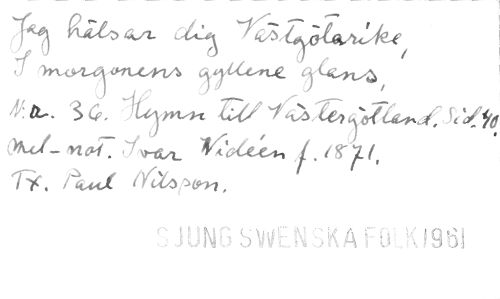 Jag hälsar dig Västgötarike,
I morgonens gyllene glans,
N:r. 36. Hymn till Västergötland. Sid. 40.
Mel-not. Ivar Widéen f. 1871.
Tx. Paul Nilsson.
SJUNG SVENSKA FOLK 1961